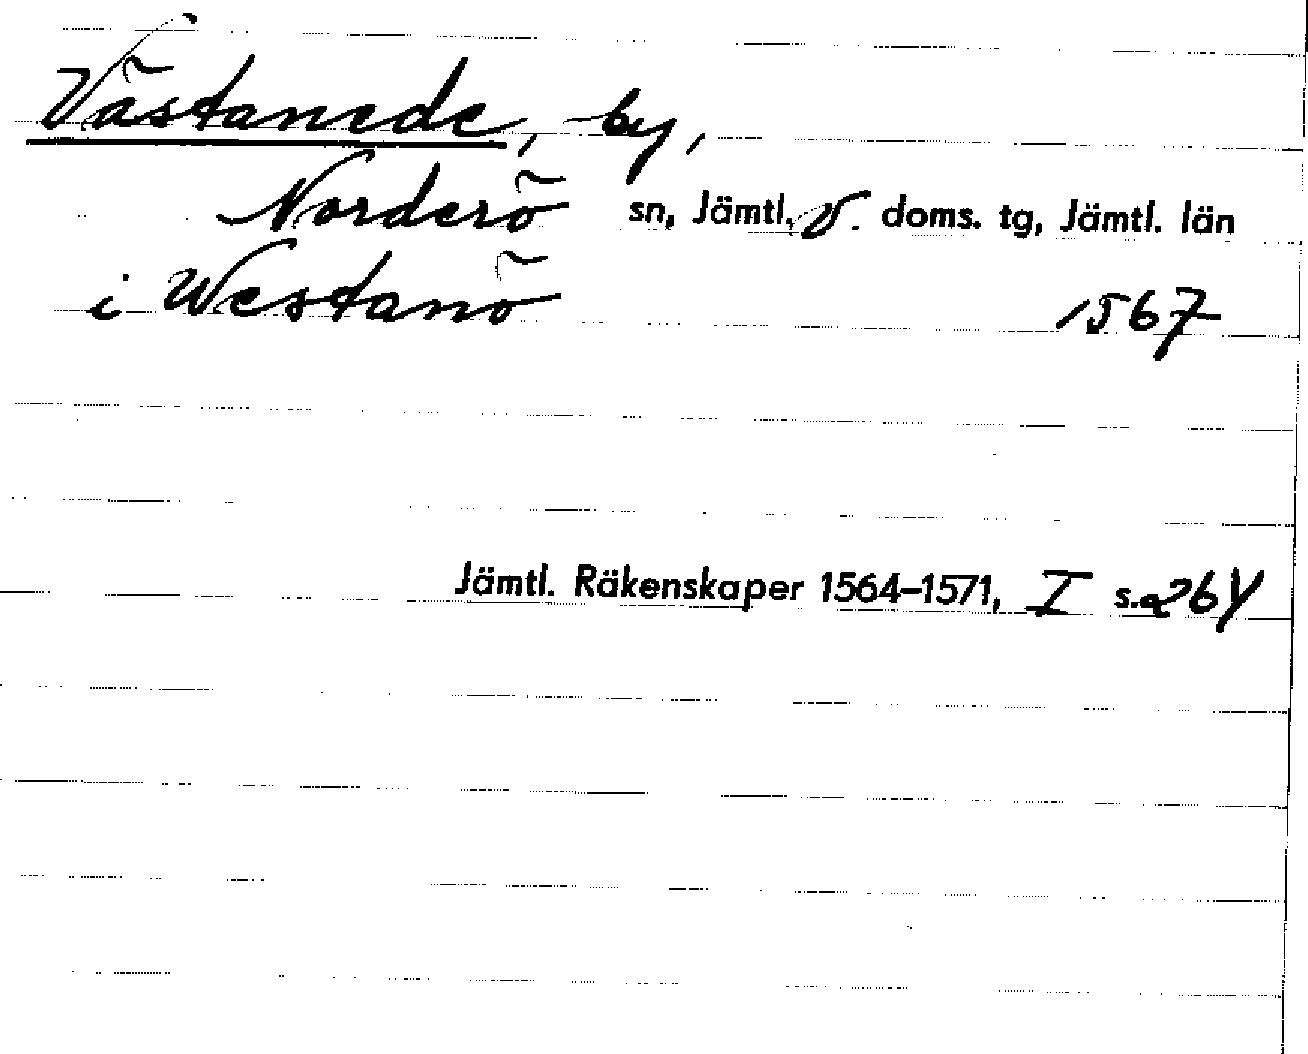 Västanede, by,
Norderö sn, Jämtl. v. doms. tg, Jämtl. län
i Westanö 1567
Jämtl. Räkenskaper 1564–1571, I s. 264